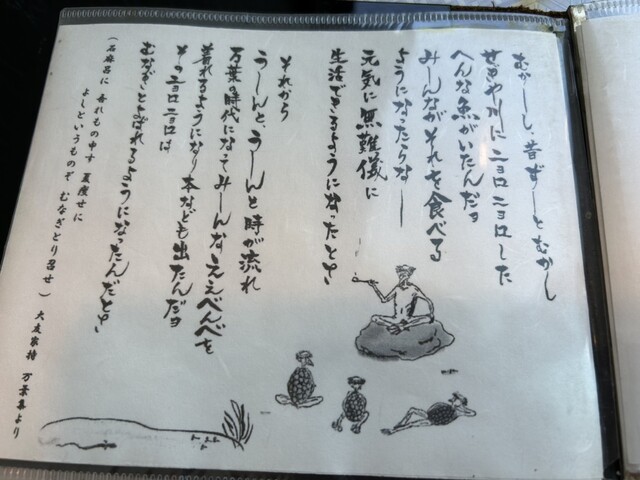 むかーし、昔ずーとむかし
せきや川にニョロニョロした
へんな魚がいたんだョ
みーんながそれを食べる
ようになったらなー
元気に無難儀に
生活できるようになったとさ
それから
うーんと、うーんと時が流れ
万葉の時代になってみーんなええべんべを
着れるようになり本なども出たんだョ
そのニョロニョロは
むなぎとよばれるようになったんだとさ
(石麻呂に 吾れもの申す 夏痩せに
よしというものぞ むなぎとり召せ) 大友家持 万葉集より